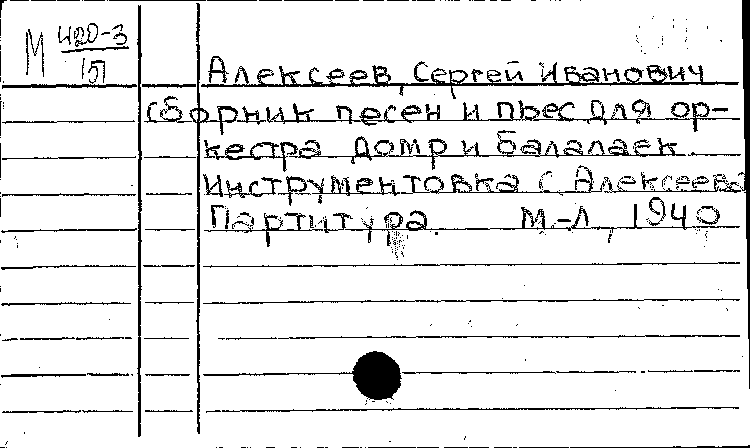 М 420-3
151
Алексеев, Сергей Иванович
Сборник песен и пьес для ор-
кестра домр и балалаек.
Инструментовка С. Алексеева
Партитура. М.-Л., 1940